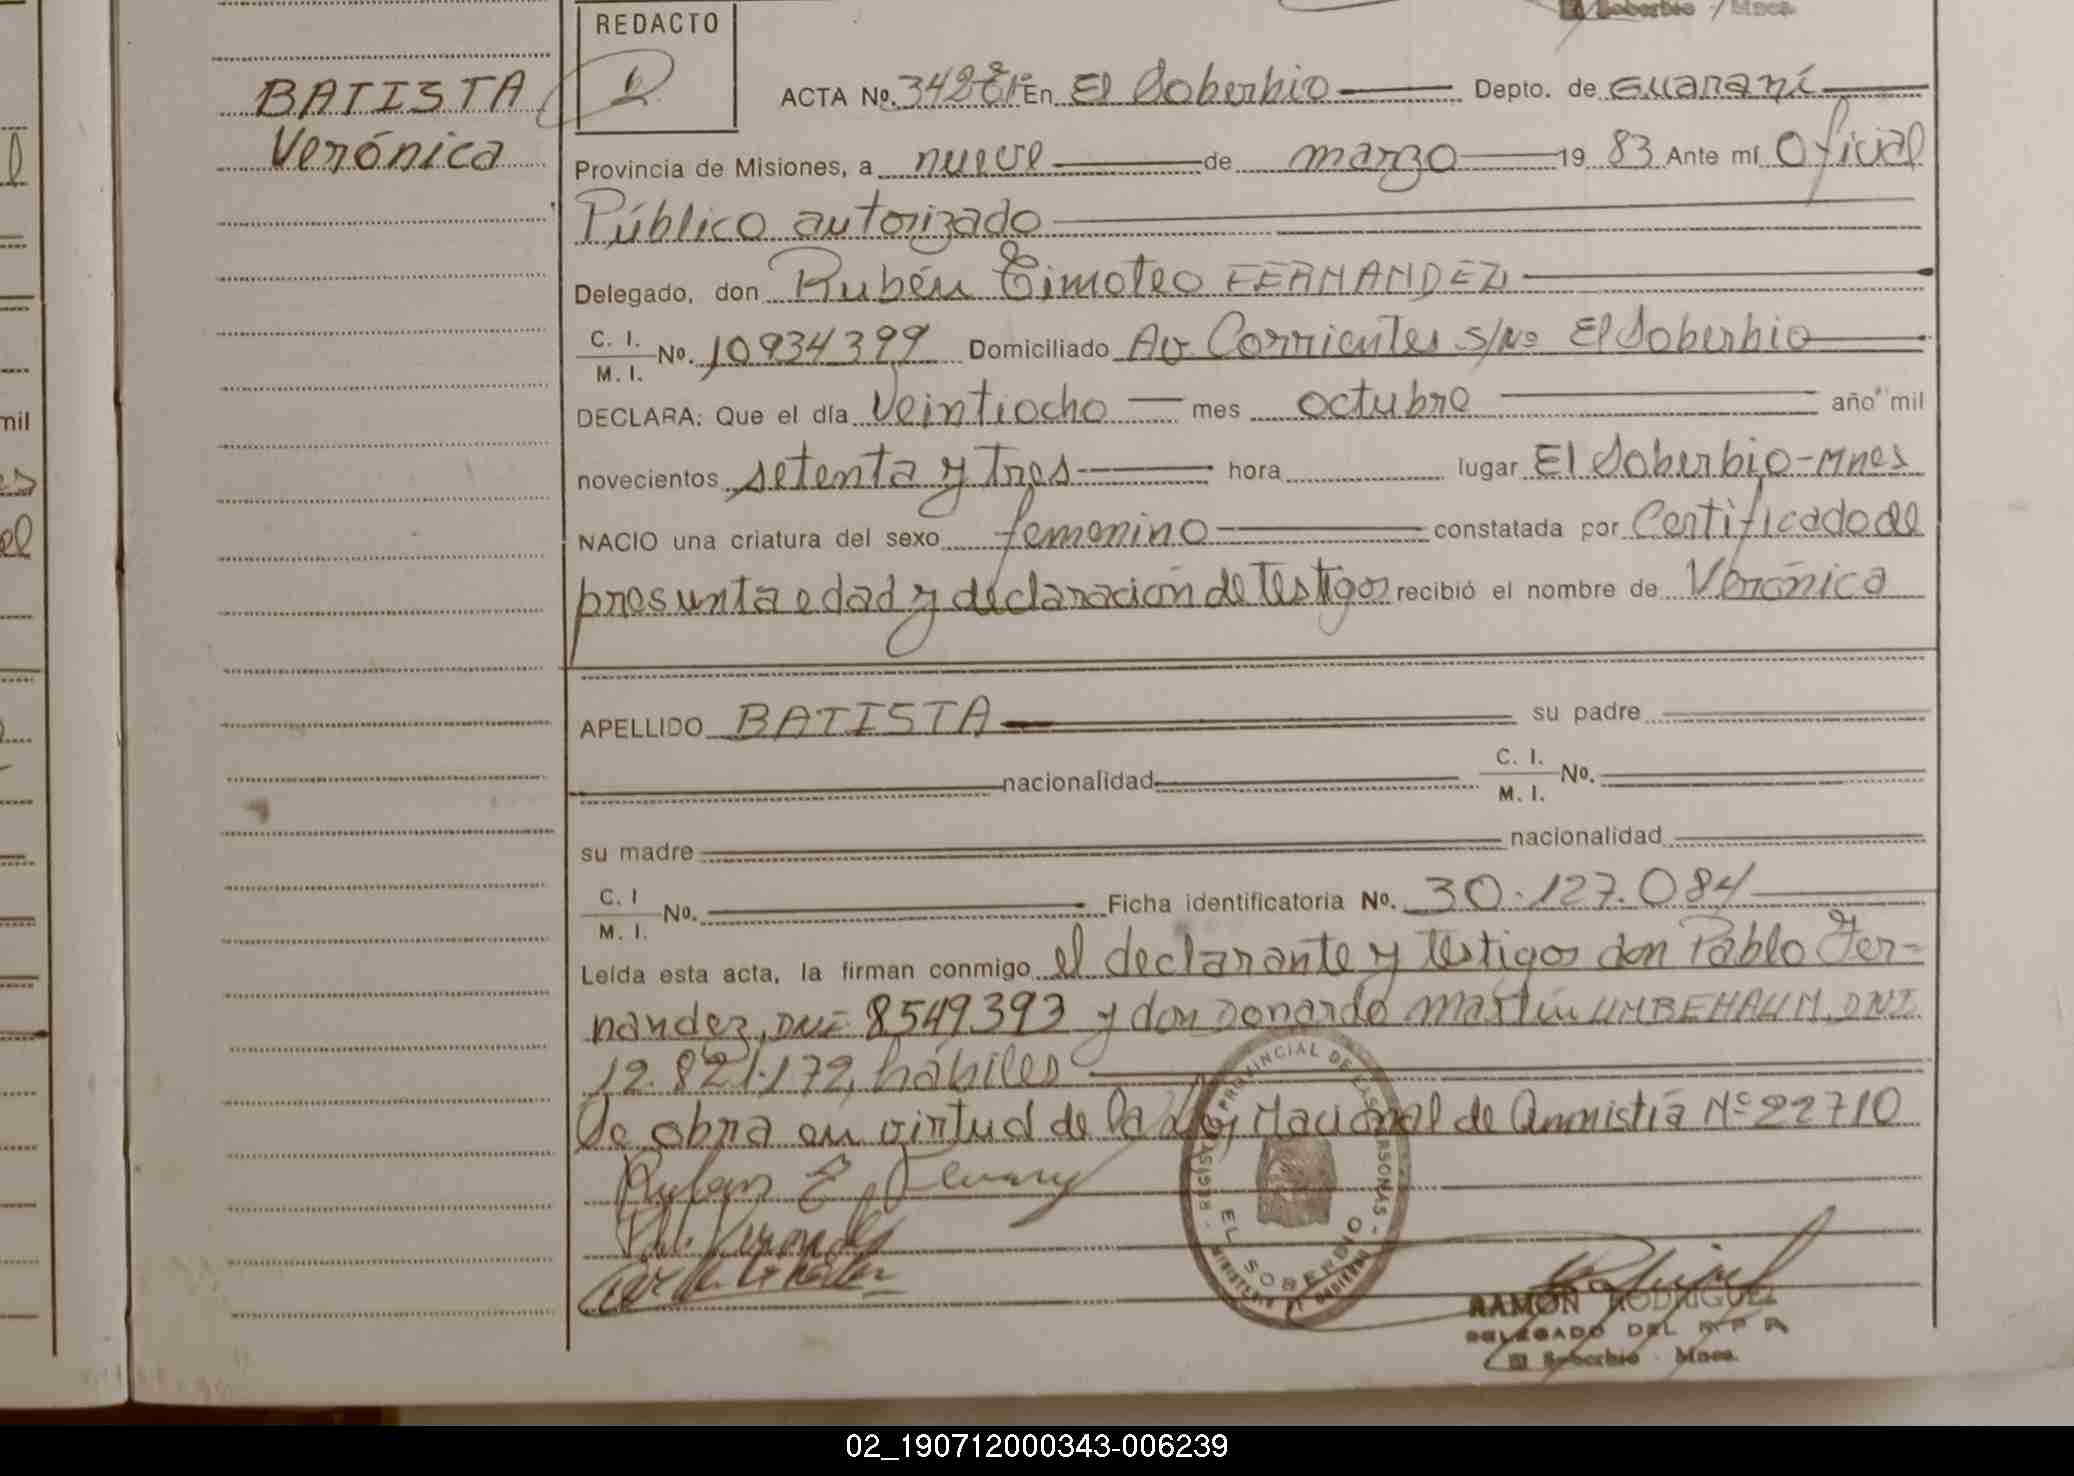 REDACTO
BATISTA
Verónica
ACTA Nº. 342 En El Soberbio Depto. de Guaraní
Provincia de Misiones, a nueve de marzo 19 83 Ante mí Oficial
Público autorizado
Delegado, don Rubén Timoteo FERNANDEZ
C. I.
M. I. Nº. 10934399 Domiciliado Av. Corrientes s/Nº El Soberbio
DECLARA: Que el día Veintiocho mes octubre año mil
novecientos setenta y tres hora lugar El Soberbio-Mnes
NACIO una criatura del sexo femenino constatada por Certificado de
presunta edad y declaración de Testigos recibió el nombre de Verónica
APELLIDO BATISTA su padre
nacionalidad C. I. Nº.
M. I.
su madre nacionalidad
C. I Nº. Ficha identificatoria Nº. 30.127.084
M. I.
Leída esta acta, la firman conmigo el declarante y testigos don Pablo Fer-
nandez, DNI 8549393 y don Martín DNI.
12.821.172, hábiles
Se obra en virtud de la Ley Nacional de Amnistía Nº 22710
REGISTRO PROVINCIAL DE LAS PERSONAS
EL SOBERBIO
MINISTERIO DE GOBIERNO
RAMÓN RODRIGUEZ
DELEGADO DEL R P P
El Soberbio - Mnes.
mil
02_190712000343-006239